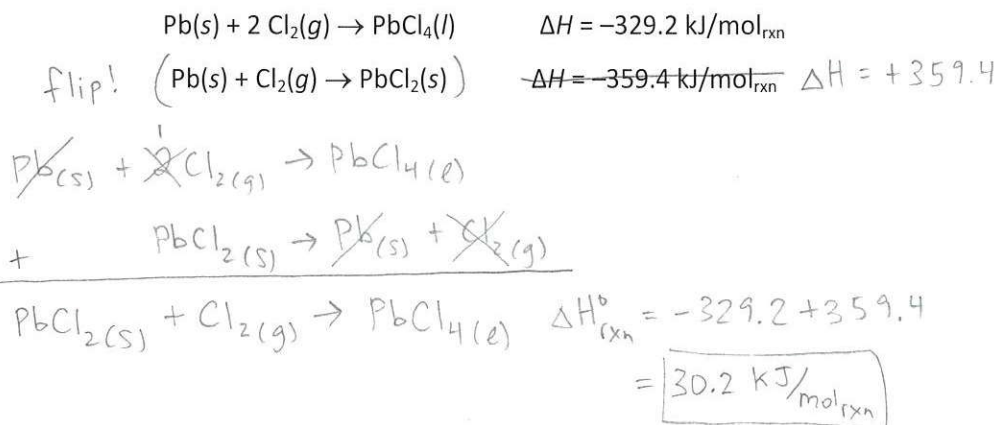 Pb(s) + 2 Cl₂(g) → PbCl₄(l) ΔH = –329.2 kJ/molrxn
flip! (Pb(s) + Cl₂(g) → PbCl₂(s)) ΔH = –359.4 kJ/molrxn ΔH = +359.4
1
Pb(s) + 2Cl₂(g) → PbCl₄(l)
+ PbCl₂(s) → Pb(s) + Cl₂(g)
PbCl₂(s) + Cl₂(g) → PbCl₄(l) ΔH°rxn = -329.2 + 359.4
= 30.2 kJ/molrxn